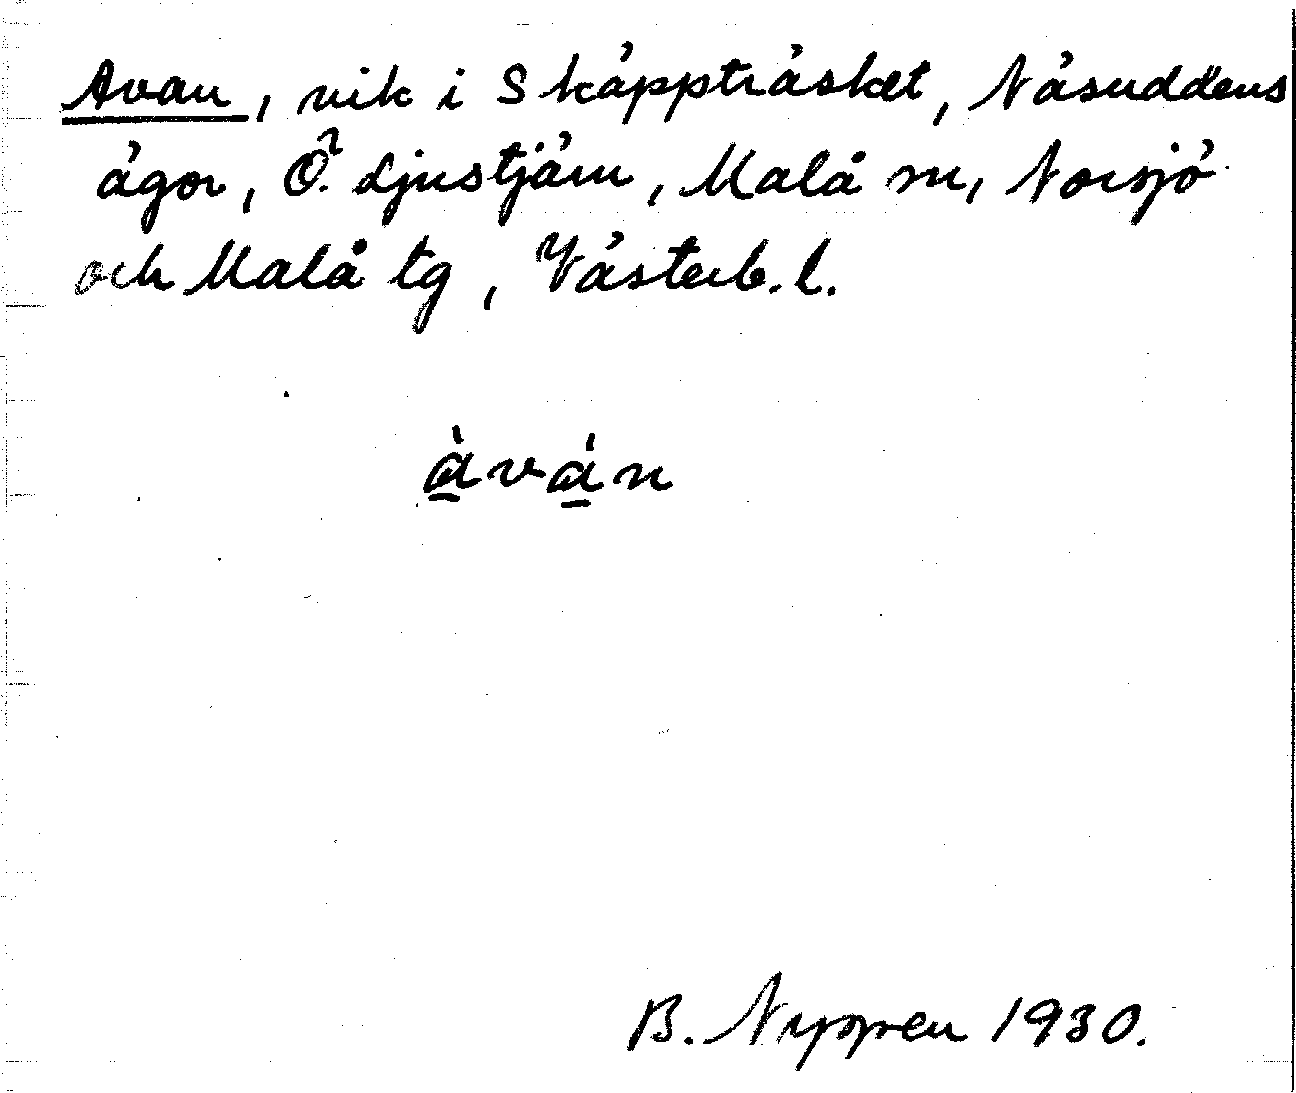 Avan, vik i Skäppträsket, Näsuddens
ägor, Ö. Ljustjärn, Malå sn, Norsjö
och Malå tg, Västerb. l.
àván
B. 1930.